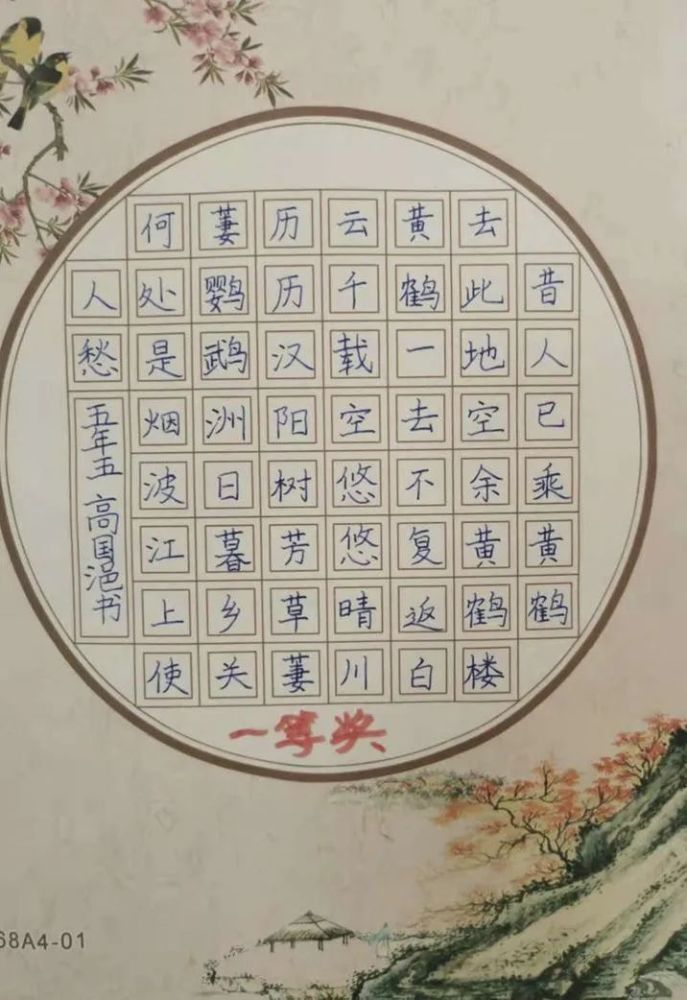 昔人已乘黄鹤
去此地空余黄鹤楼
黄鹤一去不复返白
云千载空悠悠晴川
历历汉阳树芳草萋
萋鹦鹉洲日暮乡关
何处是烟波江上使
人愁
五年五 高国浥书
一等奖
68A4-01